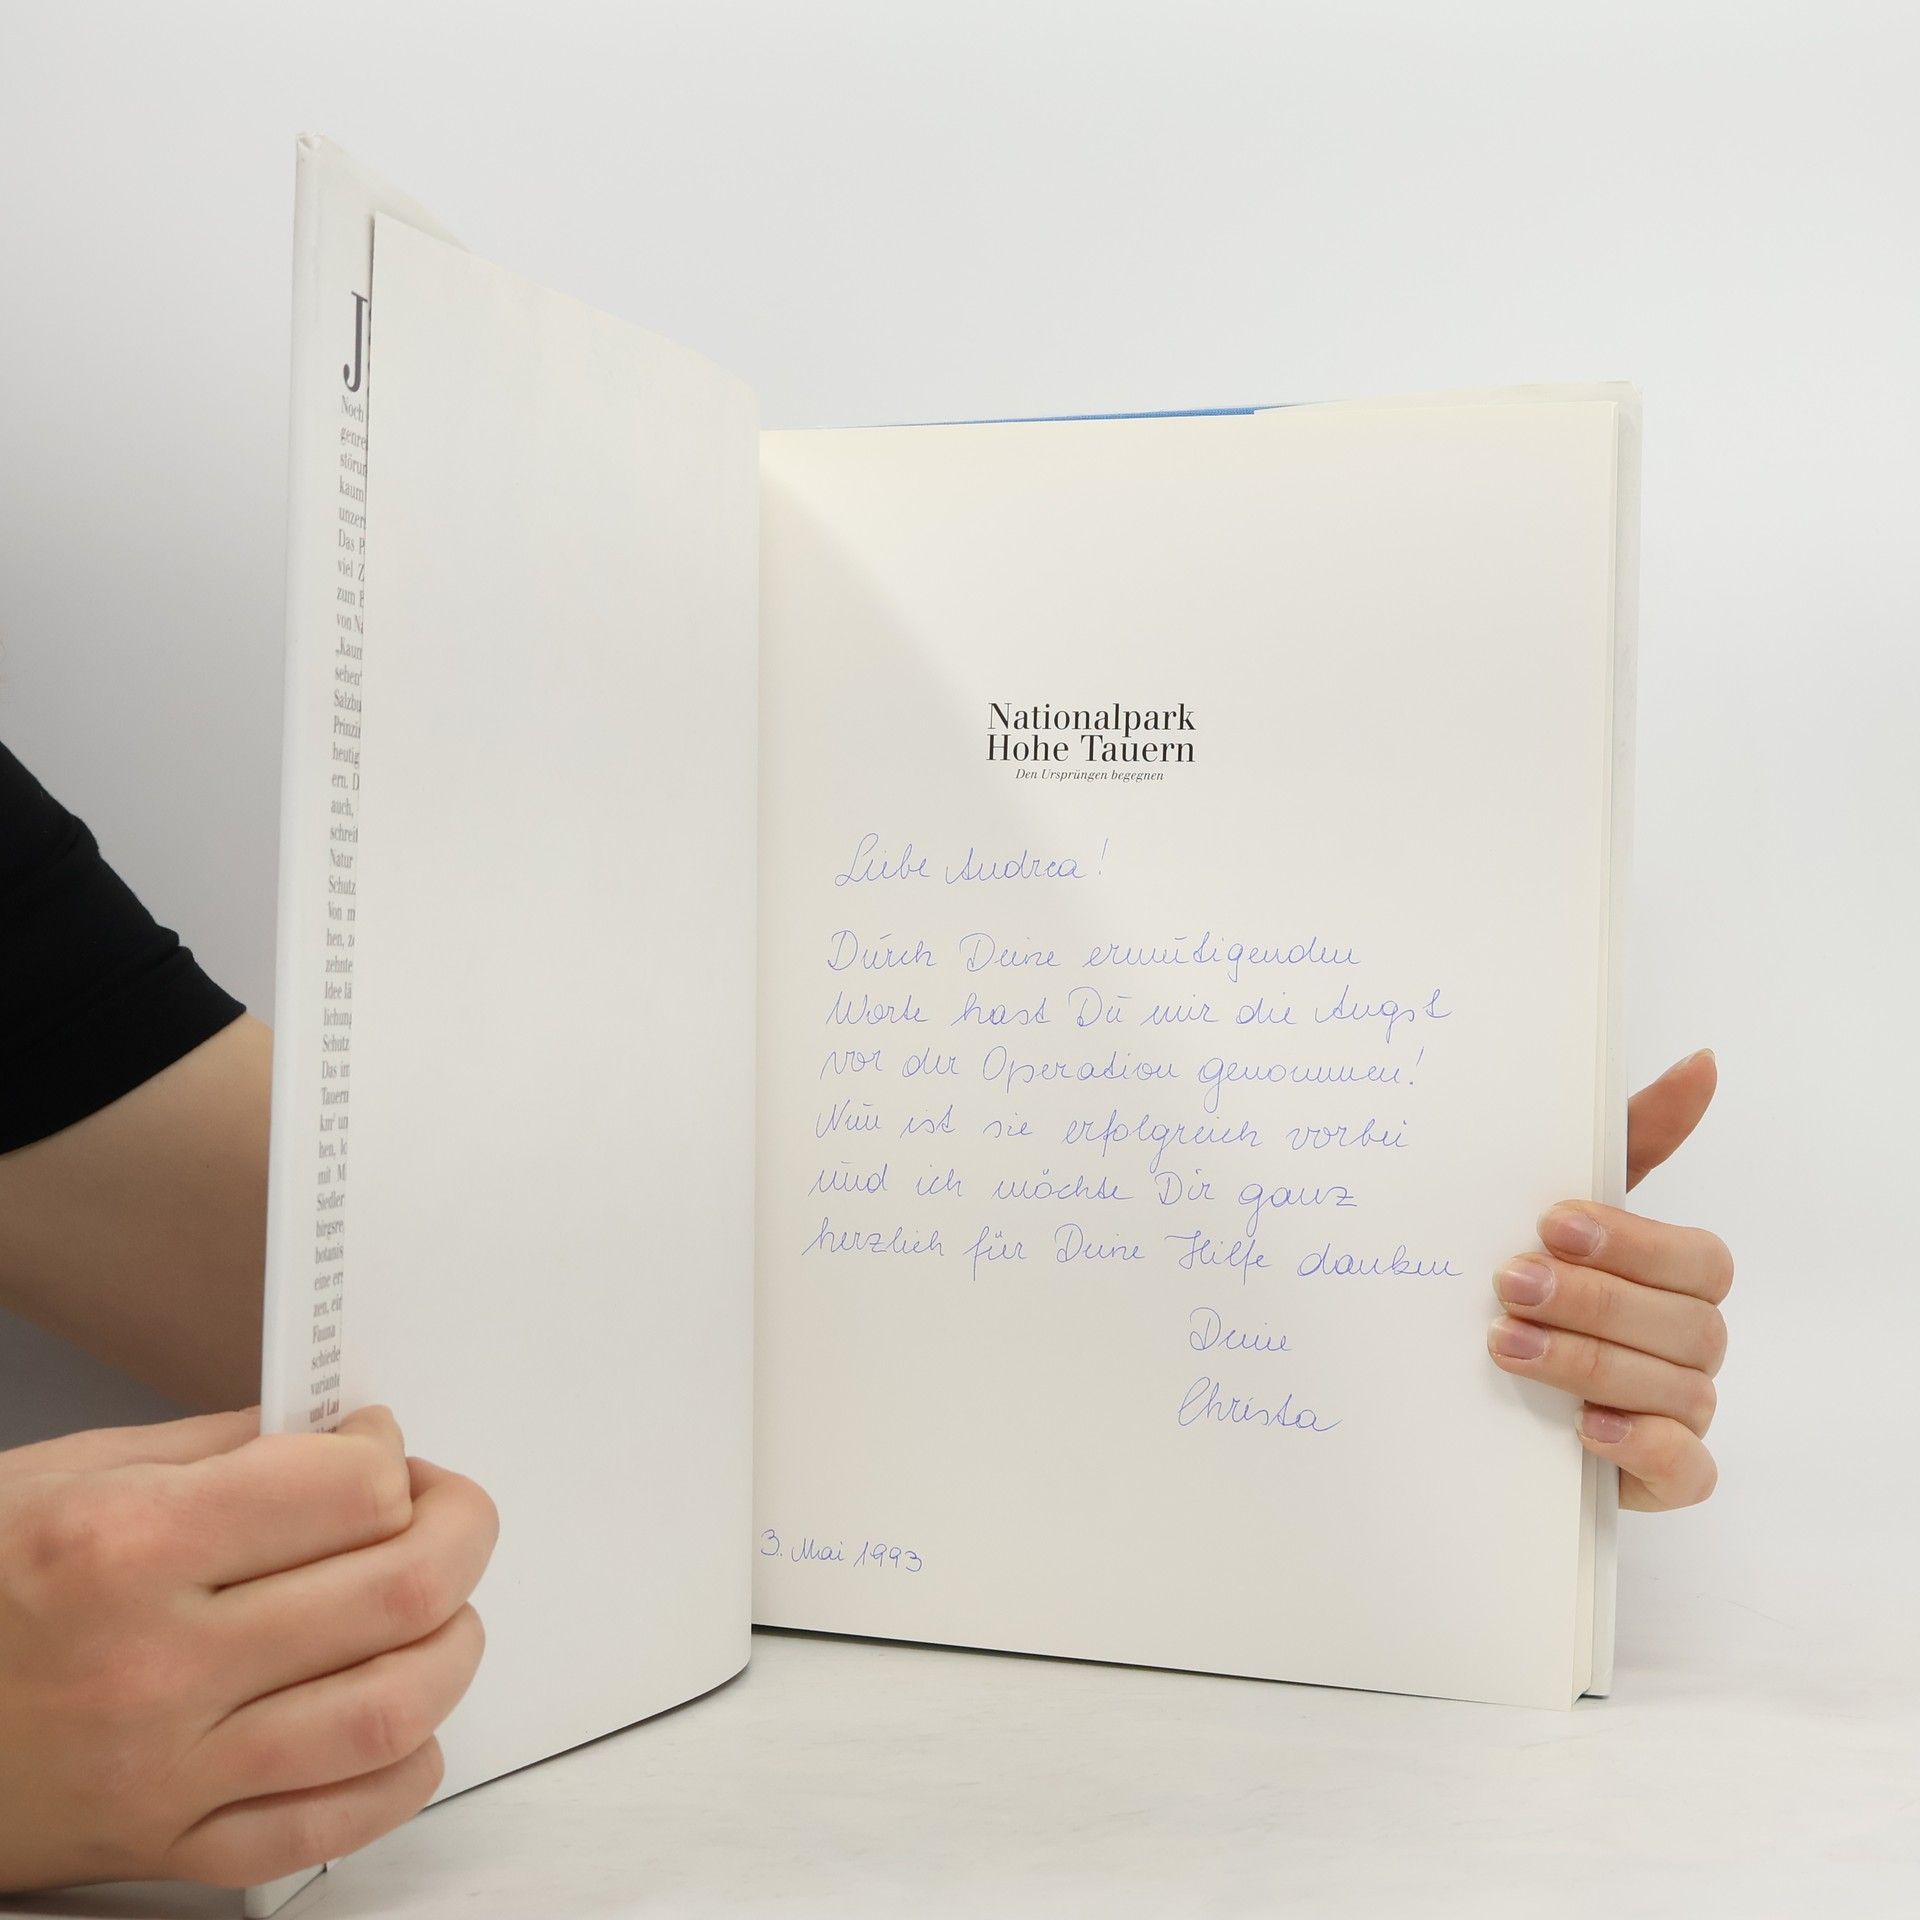 J
Noch
genre
störun
kaum
unzer
Das P
viel Z
zum E
von Na
„Kaum
sehen"
Salzbu
Prinzi
heutig
ern. D
auch,
schreit
Natur
Schutz
Von m
hen, z
zehnte
Idee lä
lichung
Schutz
Das im
Tauern
km² un
hen, lo
mit M
Siedler
birgsre
botanis
eine er
zen, ein
Fauna
schiede
variante
und Lai
Nationalpark
Hohe Tauern
Den Ursprüngen begegnen
Liebe Andrea!
Durch Deine ermutigenden
Worte hast Du mir die Angst
vor der Operation genommen!
Nun ist sie erfolgreich vorbei
und ich möchte Dir ganz
herzlich für Deine Hilfe danken
Deine
Christa
3. Mai 1993